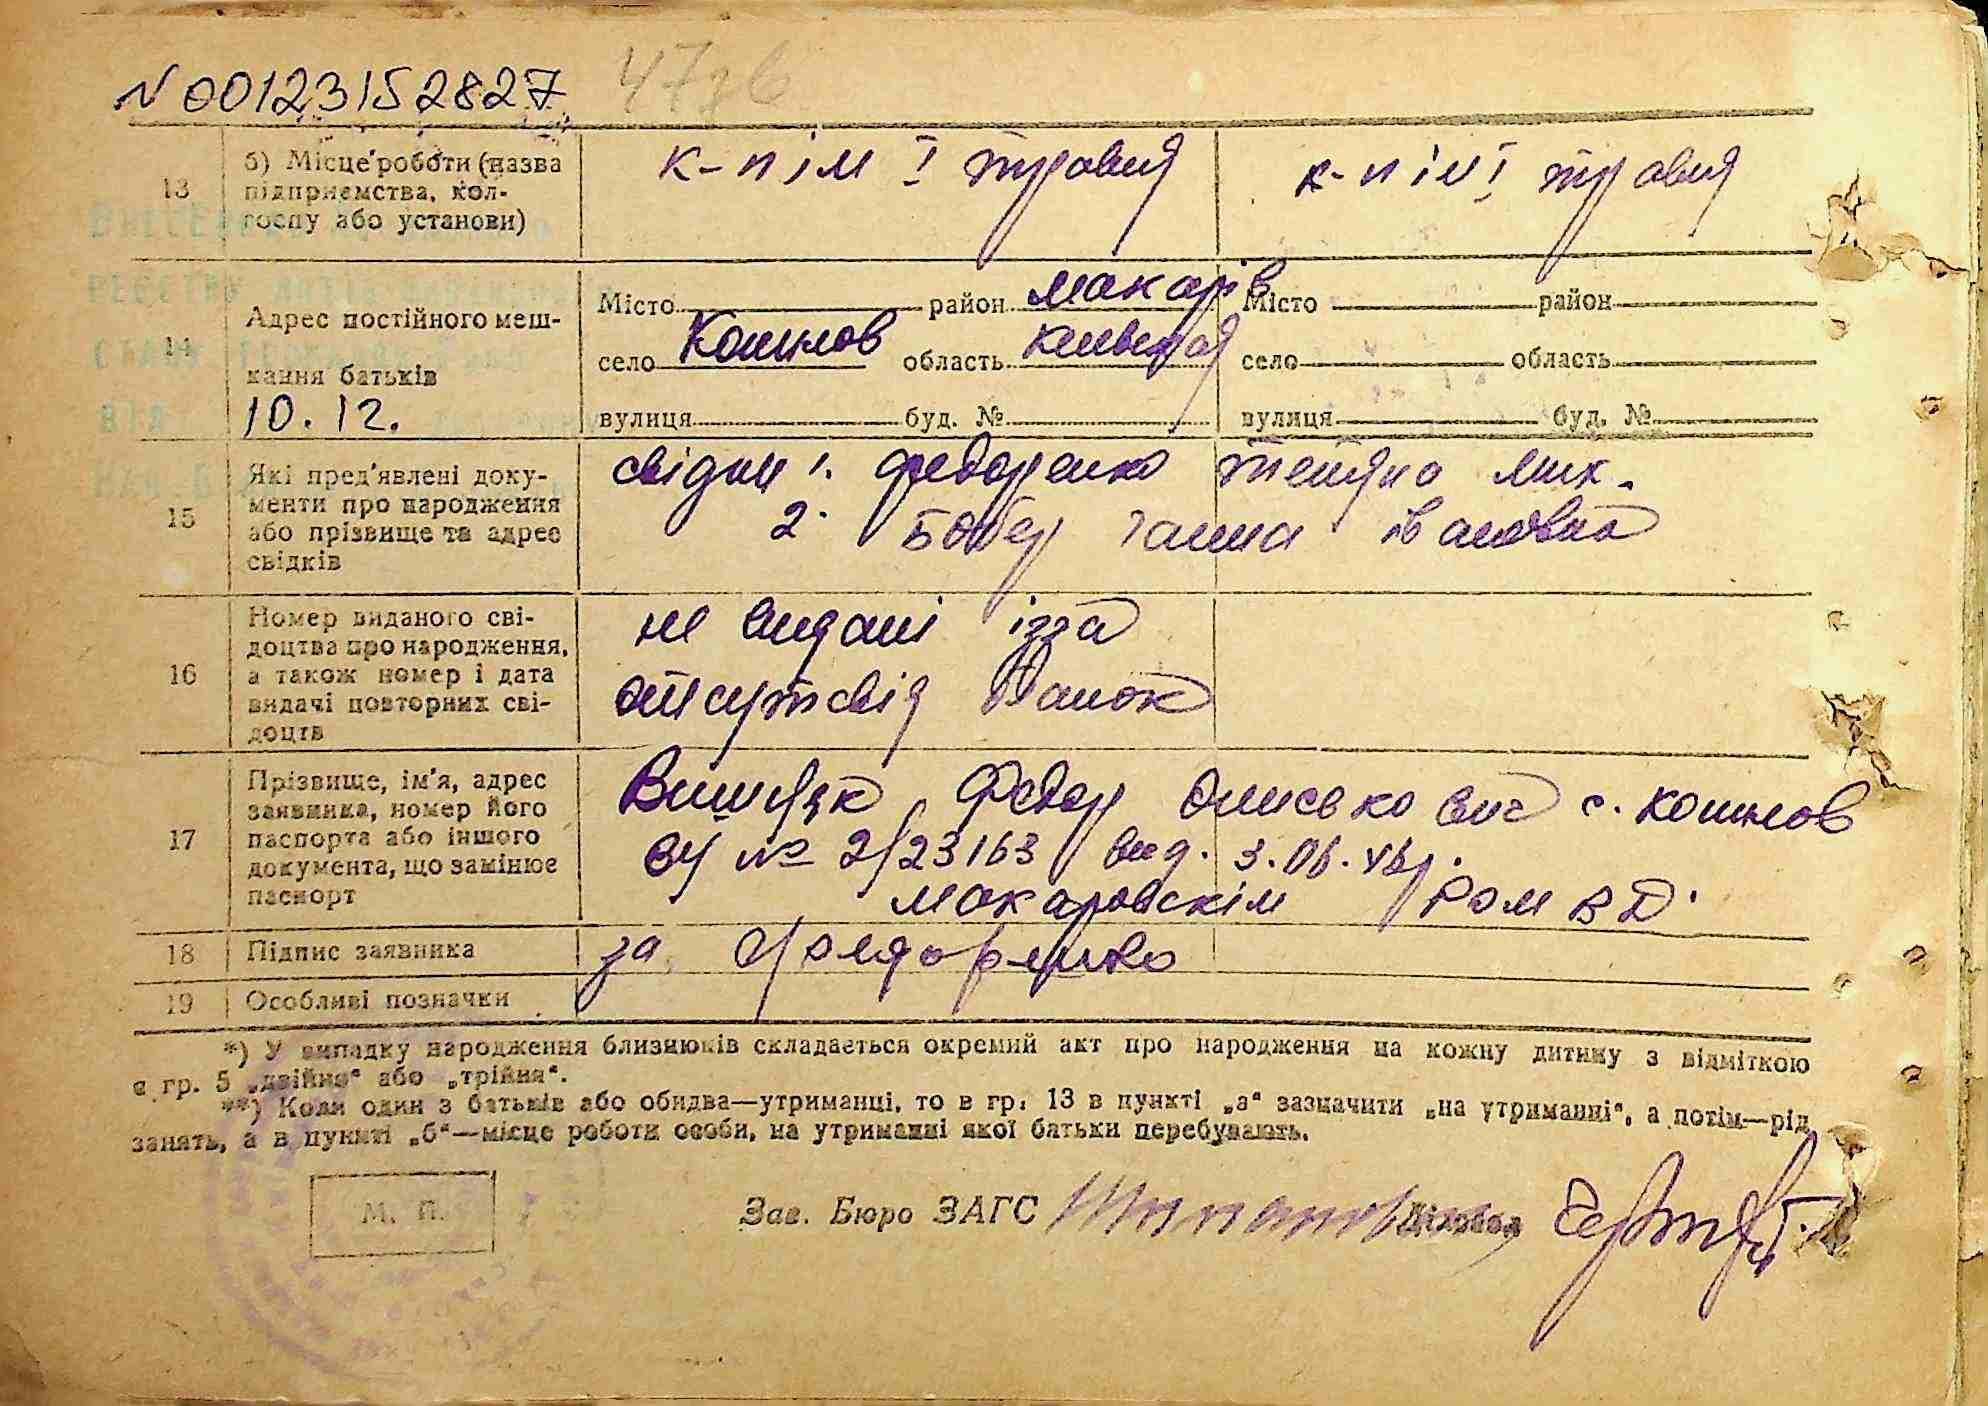 N 00123152827
13
б) Місце роботи (назва підприємства, колгоспу або установи)
к-п ім І травня
к-п ім І травня
14
Адрес постійного мешкання батьків
10.12.
Місто район Макарів
село Кошилов область киевская
вулиця буд. №
Місто район
село область
вулиця буд. №
15
Які пред'явлені документи про народження або прізвище та адрес свідків
свідки 1. Федоренко Тетяна Мих.
2. Бобер Ганна Івановна
16
Номер виданого свідоцтва про народження, а також номер і дата видачі повторних свідоцтв
не видані ізза
отсутсвія бланок
17
Прізвище, ім'я, адрес заявника, номер його паспорта або іншого документа, що замінює паспорт
Вишняк Федор с. Кошилов
№ 2/23163 вид. 3.06.46р.
Макаровскім РОМВД.
18
Підпис заявника
за Федоренко
19
Особливі позначки
*) У випадку народження близнюків складається окремий акт про народження на кожну дитину з відміткою
в гр. 5 „двійня" або „трійня".
**) Коли один з батьків або обидва—утриманці, то в гр. 13 в пункті „а" зазначити „на утриманні", а потім—рід
занять, а в пункті „б"—місце роботи особи, на утриманні якої батьки перебувають.
М. П.
Зав. Бюро ЗАГС
Діловод